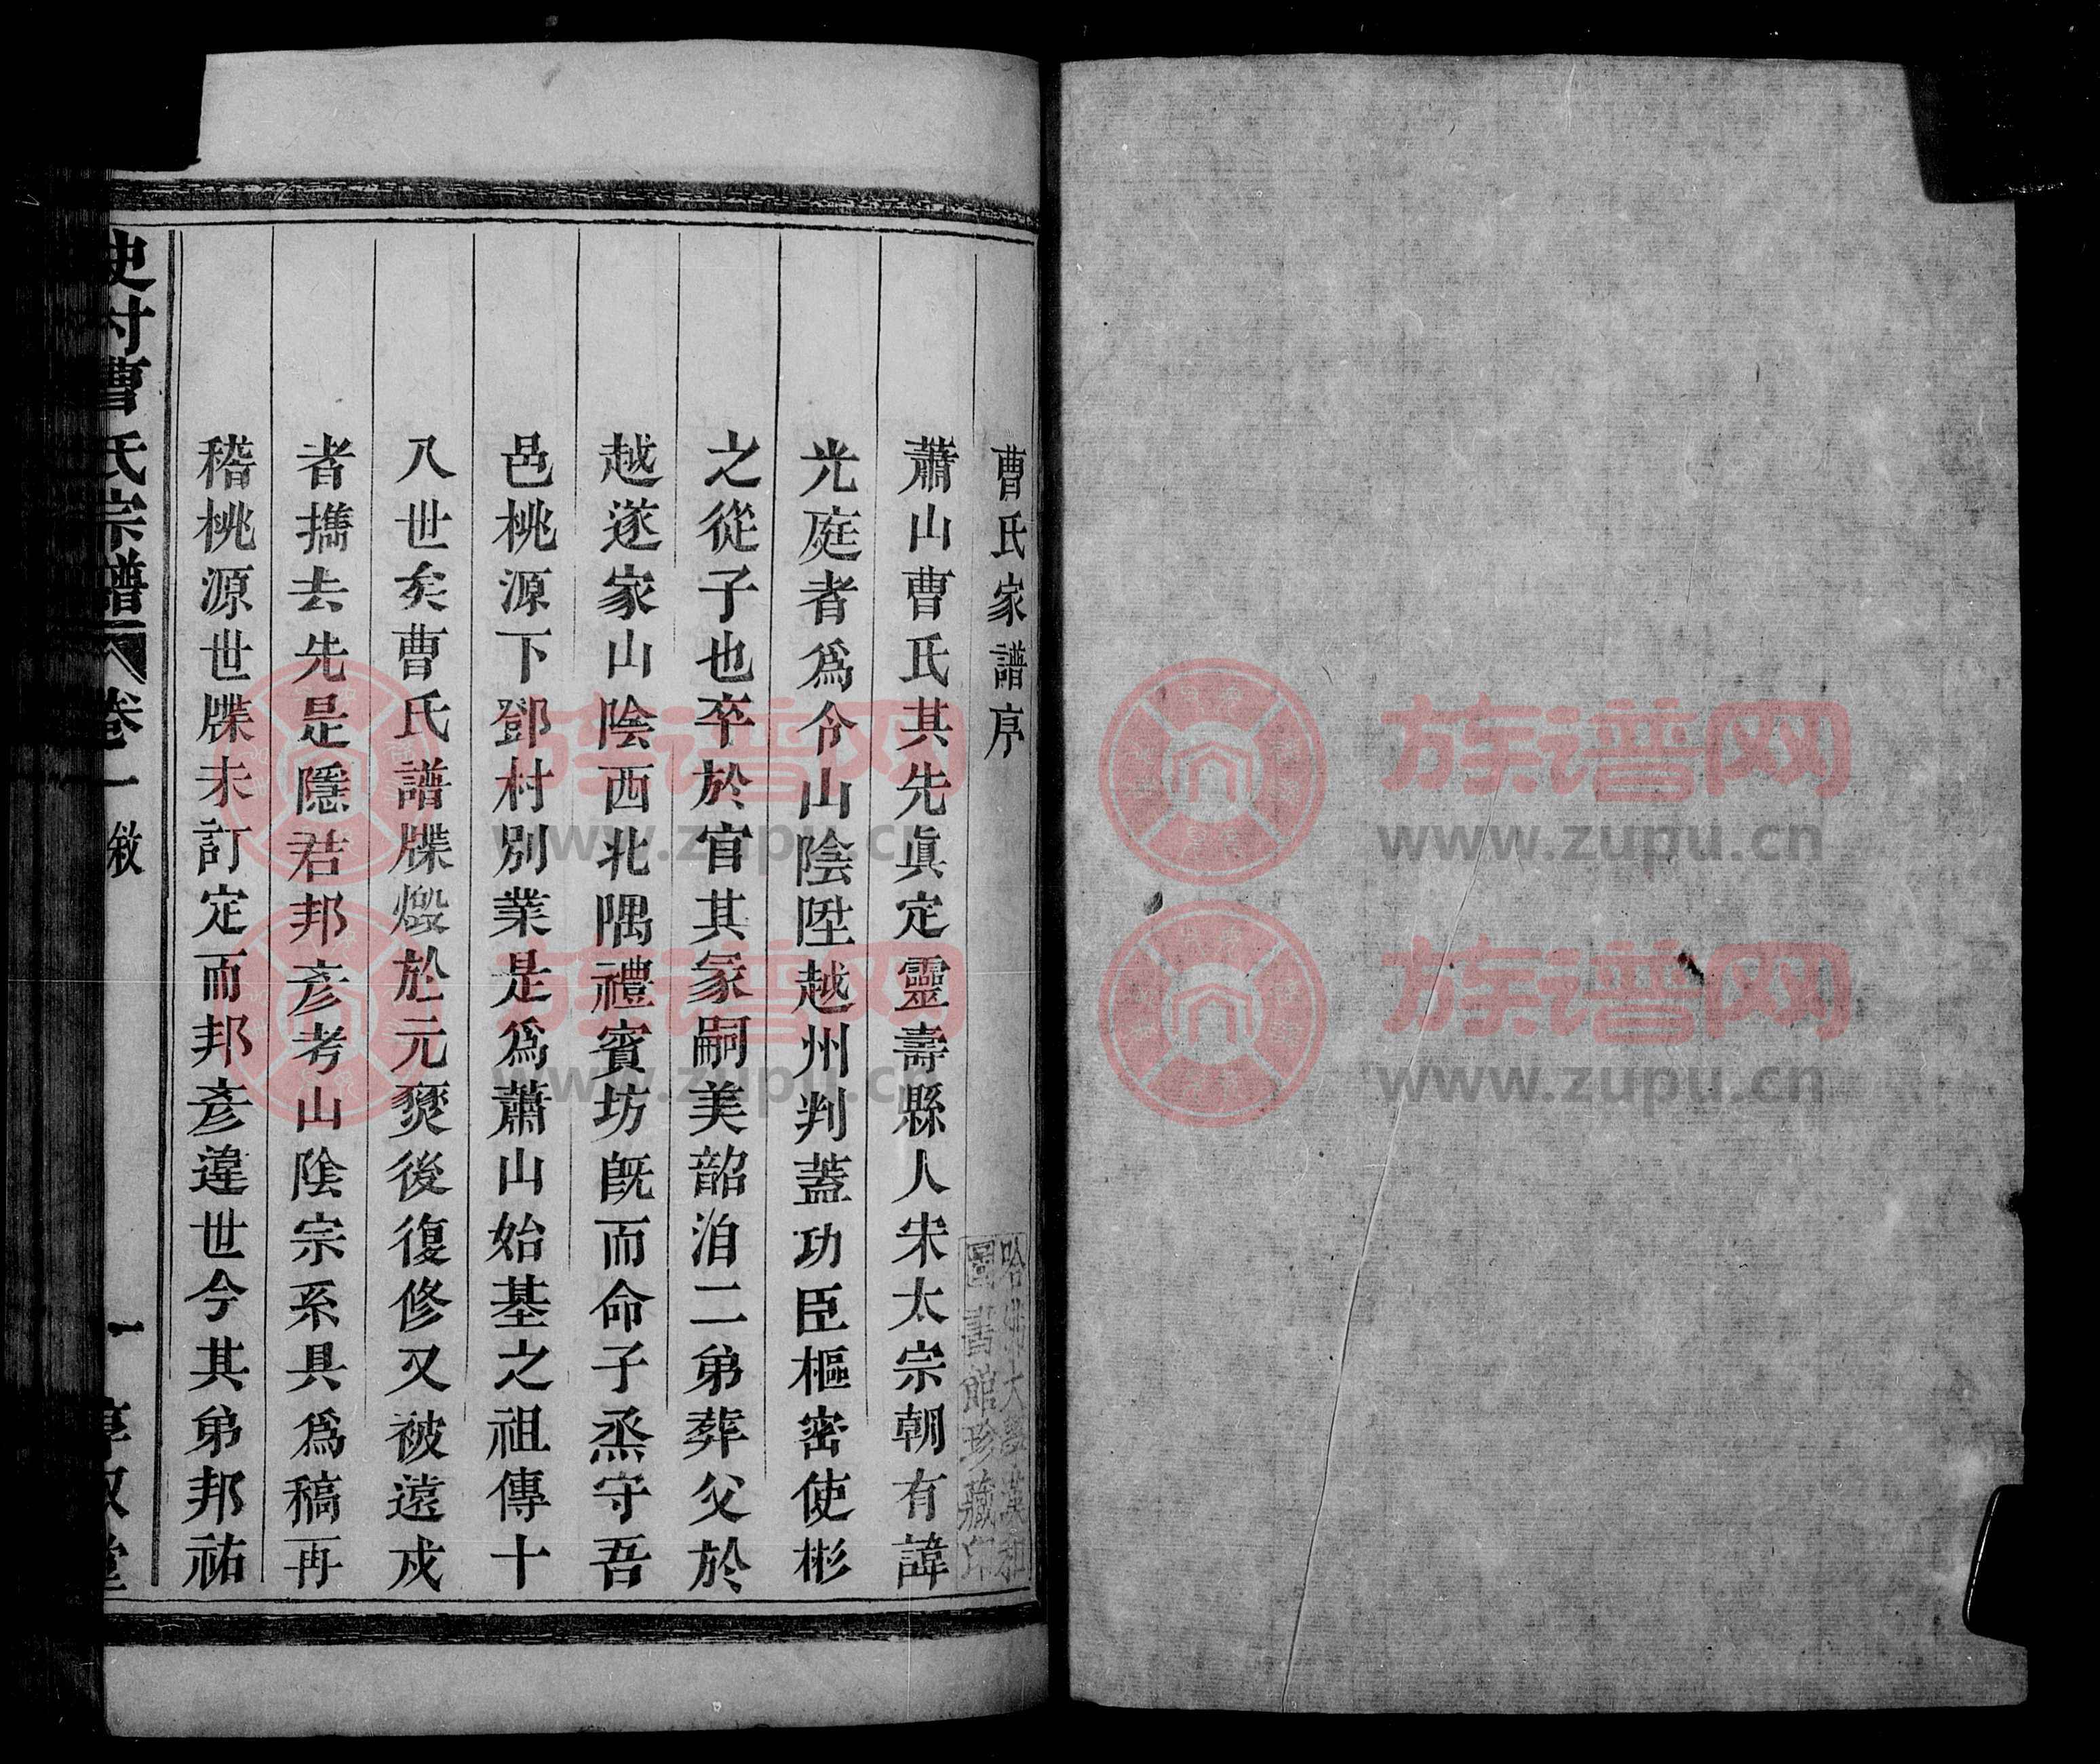 曹氏家譜序
蕭山曹氏其先眞定靈壽縣人宋太宗朝有諱
光庭者爲令山陰陞越州判蓋功臣樞密使彬
之從子也卒於官其冡嗣美韶洎二弟葬父於
越遂家山陰西北隅禮賓坊旣而命子烝守吾
邑桃源下鄧村別業是爲蕭山始基之祖傳十
八世矣曹氏譜牒燬於元燹後復修又被遠戍
者攜去先是隱君邦彥考山陰宗系具爲稿再
稽桃源世牒未訂定而邦彥違世今其弟邦祐
史村曹氏宗譜 卷一 敘 一 惇敘堂
哈佛大學漢和
圖書館珍藏印
族谱网
www.zupu.cn
族谱网
www.zupu.cn
族谱网
www.zupu.cn
族谱网
www.zupu.cn